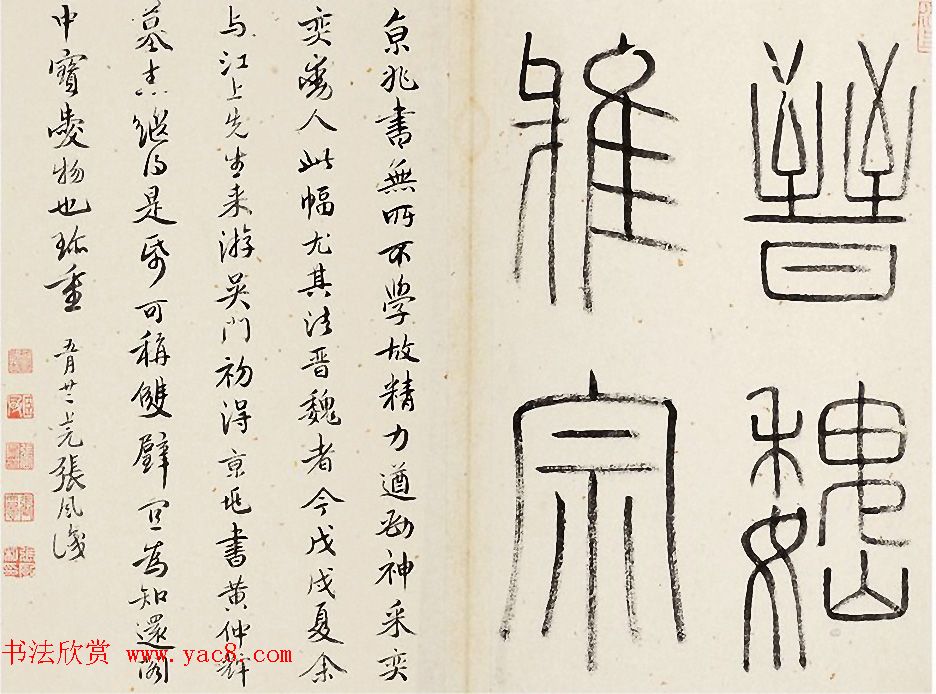 晉魏
雅宗
京兆書無所不學故精力遒勁神采奕
奕人此幅尤其法晋魏者今戊戌夏余
与江上先生来游吳門初得京兆書黄仲
墓志継得是帋可稱雙璧宜為知還閣
中寳愛物也珎重
五月廿張風識
书法欣赏 www.yac8.com